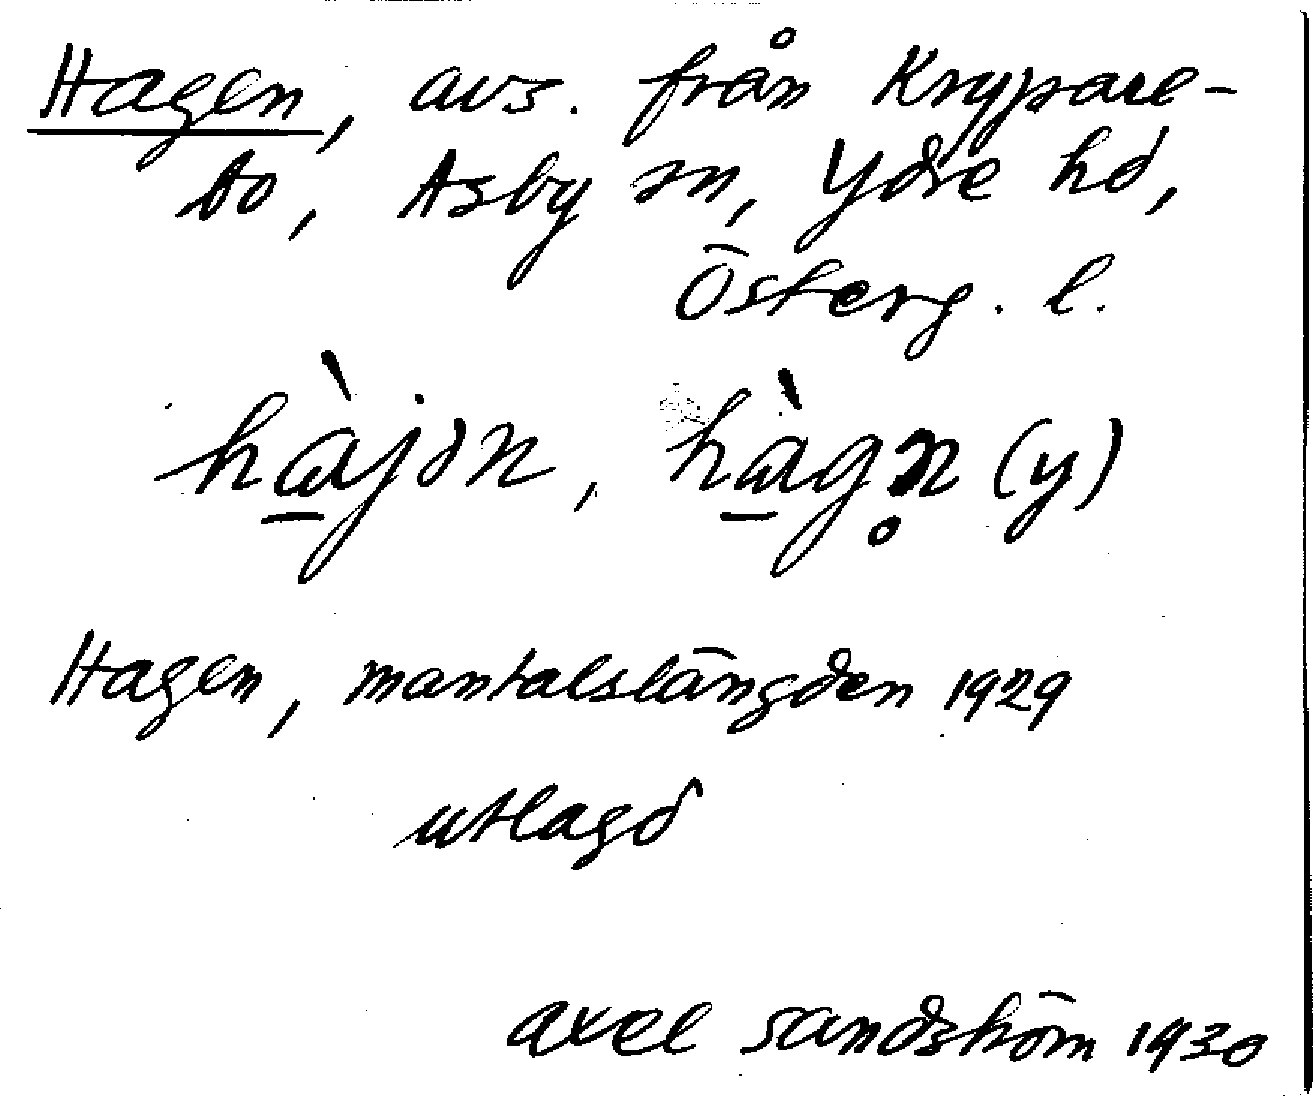 Hagen, avs. från Krypare-
bo, Asby sn, Ydre hd,
Österg. l.
hàjən, hàgn̥ (y)
Hagen, mantalslängden 1929
utlagd
axel sandström 1930